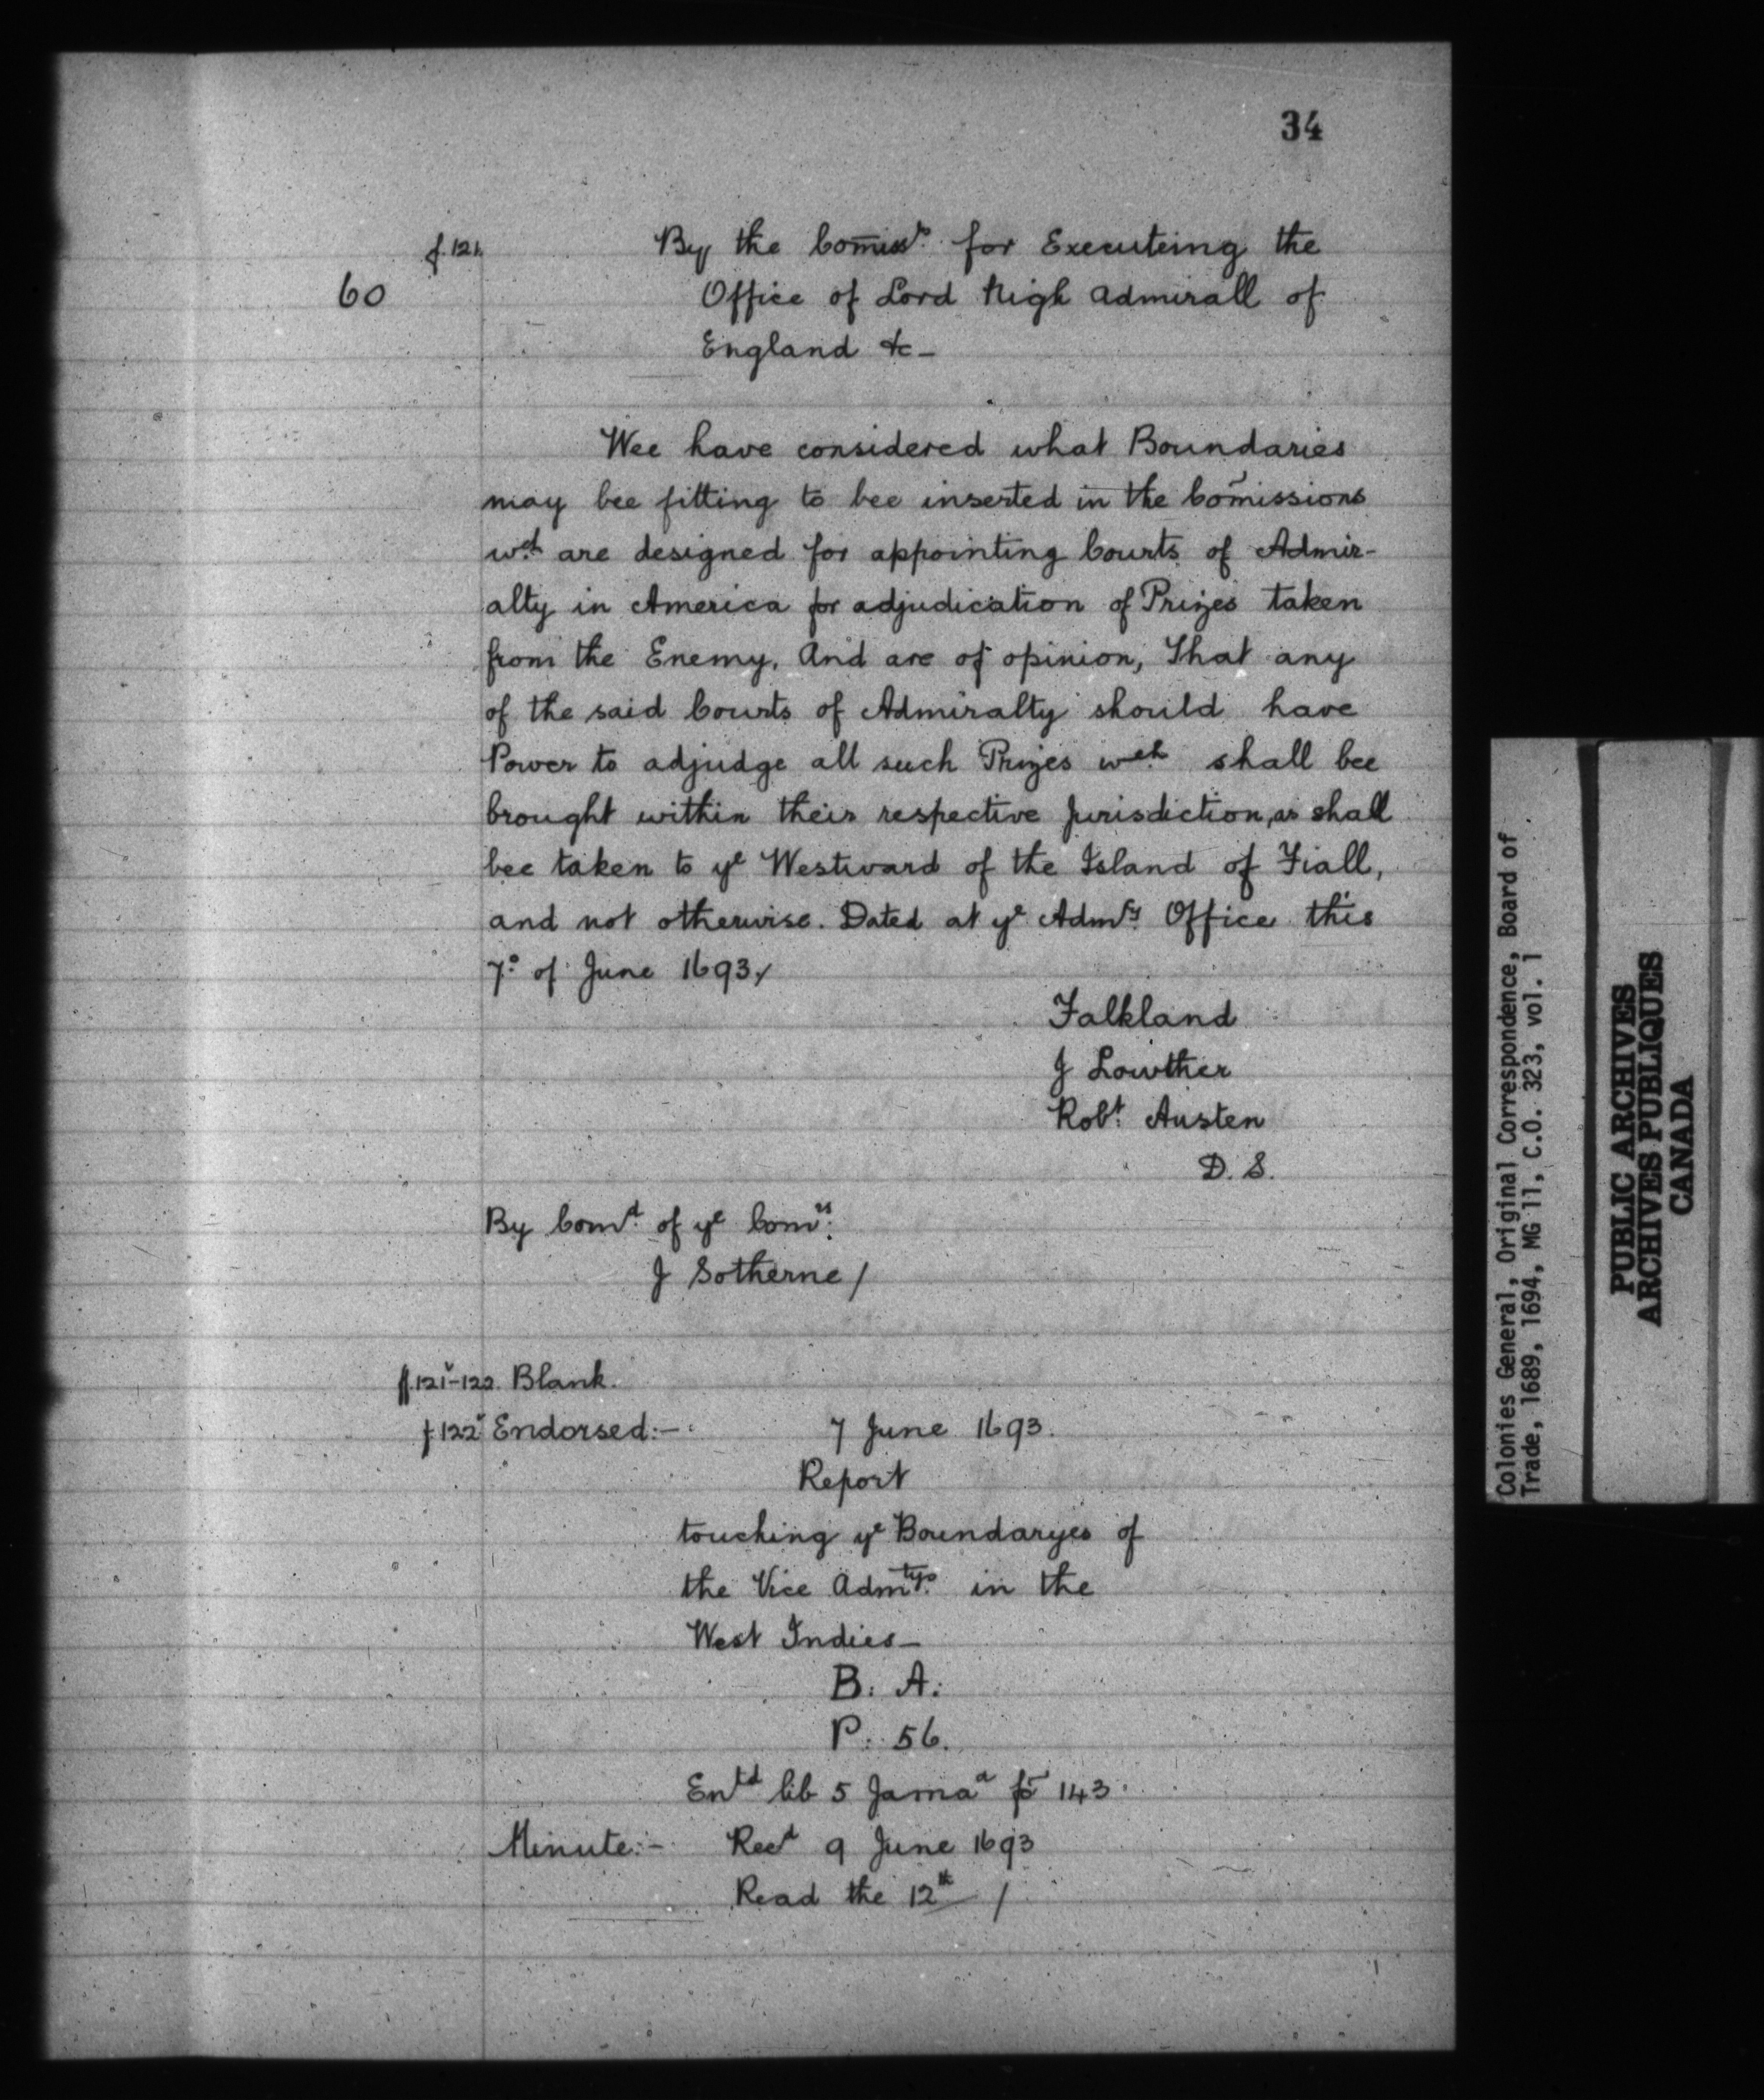 34
f.121.
60
By the Com̄issrs for Executeing the
Office of Lord High Admirall of
England &c -
Wee have considered what Boundaries
may bee fitting to bee inserted in the Com̄issions
wch are designed for appointing Courts of Admir-
alty in America for adjudication of Prizes taken
from the Enemy, And are of opinion, That any
of the said Courts of Admiralty should have
Power to adjudge all such Prizes wch shall bee
brought within their respective Jurisdiction, as shall
bee taken to ye Westward of the Island of Fiall,
and not otherwise. Dated at ye Admty Office this
7o of June 1693./
Falkland
J Lowther
Robt: Austen
D. S.
By Comd: of ye Comrs:
J Sotherne /
ff.121v-122. Blank.
f.122v Endorsed:-
7 June 1693.
Report
touching ye Boundaryes of
the Vice Admtys: in the
West Indies -
B: A:
P. 56.
Entd lib 5 Jamaa fō 143.
Minute:- Recd 9 June 1693
Read the 12th /
Colonies General, Original Correspondence, Board of
Trade, 1689, 1694, MG 11, C.O. 323, vol. 1
PUBLIC ARCHIVES
ARCHIVES PUBLIQUES
CANADA